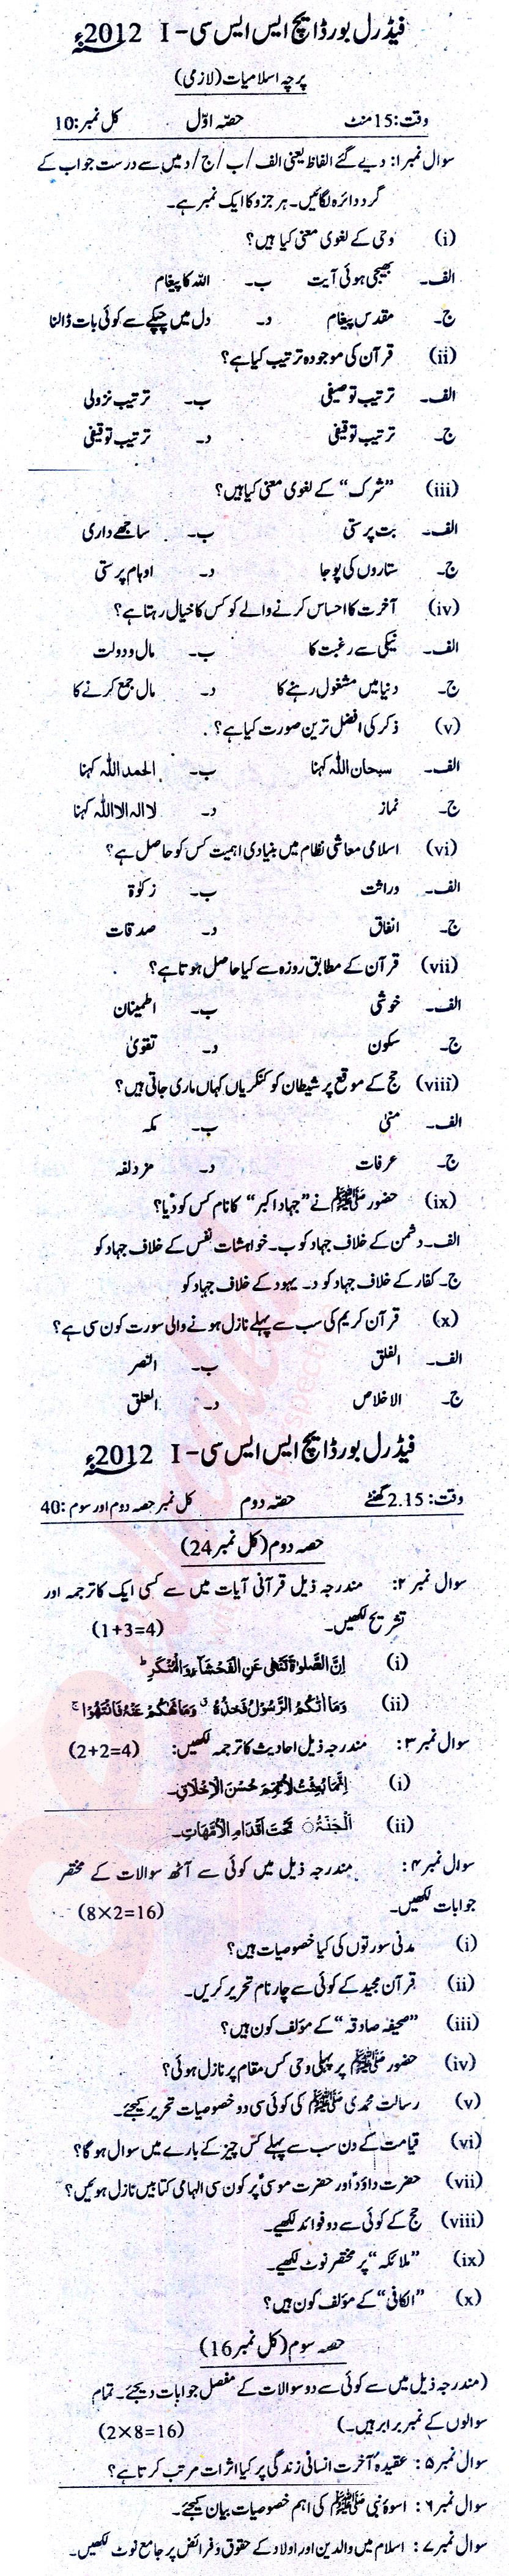 فیڈرل بورڈ ایچ ایس ایس سی - I 2012ء
پرچہ اسلامیات (لازمی)
وقت: 15 منٹ حصّہ اوّل کل نمبر: 10
سوال نمبر ۱: دیے گئے الفاظ یعنی الف / ب / ج / د میں سے درست جواب کے
گرد دائرہ لگائیں۔ ہر جزو کا ایک نمبر ہے۔
(i) وحی کے لغوی معنی کیا ہیں؟
الف۔ بھیجی ہوئی آیت ب۔ اللہ کا پیغام
ج۔ مقدس پیغام د۔ دل میں چپکے سے کوئی بات ڈالنا
(ii) قرآن کی موجودہ ترتیب کیا ہے؟
الف۔ ترتیب توصیفی ب۔ ترتیب نزولی
ج۔ ترتیب توقیفی د۔ ترتیب توقیفی
(iii) "شرک" کے لغوی معنی کیا ہیں؟
الف۔ بت پرستی ب۔ ساجھے داری
ج۔ ستاروں کی پوجا د۔ اوہام پرستی
(iv) آخرت کا احساس کرنے والے کو کس کا خیال رہتا ہے؟
الف۔ نیکی سے رغبت کا ب۔ مال و دولت
ج۔ دنیا میں مشغول رہنے کا د۔ مال جمع کرنے کا
(v) ذکر کی افضل ترین صورت کیا ہے؟
الف۔ سبحان اللہ کہنا ب۔ الحمد اللہ کہنا
ج۔ نماز د۔ لا الہ الا اللہ کہنا
(vi) اسلامی معاشی نظام میں بنیادی اہمیت کس کو حاصل ہے؟
الف۔ وراثت ب۔ زکوٰۃ
ج۔ انفاق د۔ صدقات
(vii) قرآن کے مطابق روزہ سے کیا حاصل ہوتا ہے؟
الف۔ خوشی ب۔ اطمینان
ج۔ سکون د۔ تقویٰ
(viii) حج کے موقع پر شیطان کو کنکریاں کہاں ماری جاتی ہیں؟
الف۔ منیٰ ب۔ مکہ
ج۔ عرفات د۔ مزدلفہ
(ix) حضور ﷺ نے "جہاد اکبر" کا نام کس کو دیا؟
الف۔ دشمن کے خلاف جہاد کو ب۔ خواہشات نفس کے خلاف جہاد کو
ج۔ کفار کے خلاف جہاد کو د۔ یہود کے خلاف جہاد کو
(x) قرآن کریم کی سب سے پہلے نازل ہونے والی سورت کون سی ہے؟
الف۔ الفلق ب۔ النصر
ج۔ الاخلاص د۔ العلق
فیڈرل بورڈ ایچ ایس ایس سی - I 2012ء
وقت: 2.15 گھنٹے حصّہ دوم کل نمبر حصہ دوم اور سوم: 40
حصہ دوم (کل نمبر 24)
سوال نمبر ۲: مندرجہ ذیل قرآنی آیات میں سے کسی ایک کا ترجمہ اور
تشریح لکھیں۔ (1+3=4)
(i) اِنَّ الصَّلٰوۃَ تَنْھٰی عَنِ الْفَحْشَآءِ وَالْمُنْکَرِ ؕ
(ii) وَمَا اٰتٰکُمُ الرَّسُوْلُ فَخُذُوْہُ ق وَمَا نَھٰکُمْ عَنْہُ فَانْتَھُوْا ج
سوال نمبر ۳: مندرجہ ذیل احادیث کا ترجمہ لکھیں: (2+2=4)
(i) اِنَّمَا بُعِثْتُ لِاُتَمِّمَ حُسْنَ الْاَخْلَاقِ۔
(ii) اَلْجَنَّۃُ تَحْتَ اَقْدَامِ الْاُمَّھَاتِ۔
سوال نمبر ۴: مندرجہ ذیل میں کوئی سے آٹھ سوالات کے مختصر
جوابات لکھیں۔ (8×2=16)
(i) مدنی سورتوں کی کیا خصوصیات ہیں؟
(ii) قرآن مجید کے کوئی سے چار نام تحریر کریں۔
(iii) "صحیفہ صادقہ" کے مؤلف کون ہیں؟
(iv) حضور ﷺ پر پہلی وحی کس مقام پر نازل ہوئی؟
(v) رسالت محمدی ﷺ کی کوئی سی دو خصوصیات تحریر کیجئے۔
(vi) قیامت کے دن سب سے پہلے کس چیز کے بارے میں سوال ہوگا؟
(vii) حضرت داؤدؑ اور حضرت موسیٰؑ پر کون سی الہامی کتابیں نازل ہوئیں؟
(viii) حج کے کوئی سے دو فوائد لکھیے۔
(ix) "ملائکہ" پر مختصر نوٹ لکھیے۔
(x) "الکافی" کے مؤلف کون ہیں؟
حصہ سوم (کل نمبر 16)
(مندرجہ ذیل میں سے کوئی سے دو سوالات کے مفصل جوابات دیجئے۔ تمام
سوالوں کے نمبر برابر ہیں۔) (2×8=16)
سوال نمبر ۵: عقیدہ آخرت انسانی زندگی پر کیا اثرات مرتب کرتا ہے؟
سوال نمبر ۶: اسوۂ نبی ﷺ کی اہم خصوصیات بیان کیجئے۔
سوال نمبر ۷: اسلام میں والدین اور اولاد کے حقوق و فرائض پر جامع نوٹ لکھیں۔